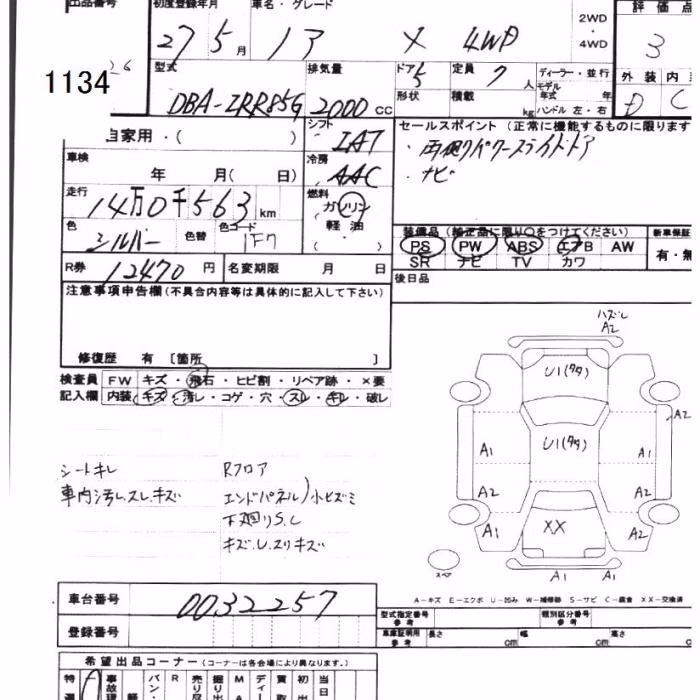 出品番号 初度登録年月 車名・グレード 評価点
27 5月 X 4WD 2WD・4WD 3
1134
型式 排気量 ドア 5 定員 7人 ディーラー・並行 外装 内
DBA-ZRR85G 2000cc 形状 積載 kg モデル年式 年 ハンドル 左・右 D C
自家用・( )
シフト IAT
セールスポイント(正常に機能するものに限ります
・両側パワースライドドア
・ナビ
車検 年 月( 日)
冷房 AAC
走行 14万0千563km
燃料 ガソリン 軽油 ( )
色 シルバー 色替 色コード 1F7
装備品(純正品に限り○をつけてください) 新車保証
PS PW ABS エアB AW 有・無
SR ナビ TV カワ
R券 12470円 名変期限 月 日
後日品
注意事項申告欄(不具合内容等は具体的に記入して下さい)
修復歴 有 〔箇所 〕
検査員 FW キズ・飛石・ヒビ割・リペア跡・×要
記入欄 内装 キズ・汚レ・コゲ・穴・スレ・キレ・破レ
ハズレ
A2
U1(タタ)
A2
U1(タタ)
A1 A1
A2 A2
A1 XX A1
スペア
A1 A1
シートキレ
車内汚レ.スレ.キズ
Rフロア
エンドパネル)小ヒズミ
下廻りS.C
キズ.U.スリキズ
A-キズ E-エクボ U-凹み W-補修跡 S-サビ C-腐食 XX-交換済
車台番号 0032257
登録番号
型式指定番号 参考 類別区分番号 参考
車庫証明用 参考 長さ cm 幅 cm 高さ cm
希望出品コーナー(コーナーは各会場により異なります。)